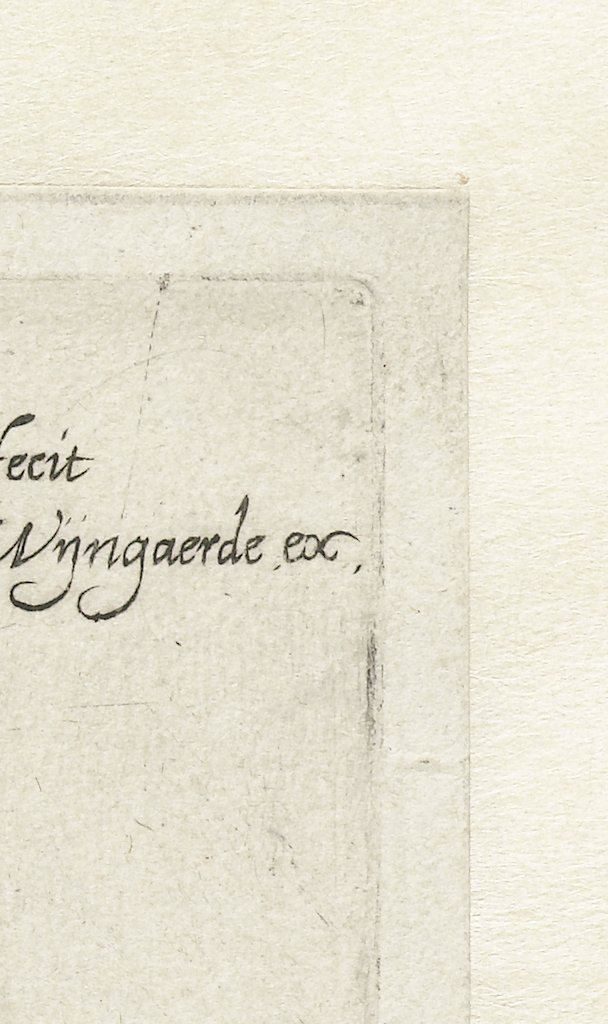 fecit
Wijngaerde ex.